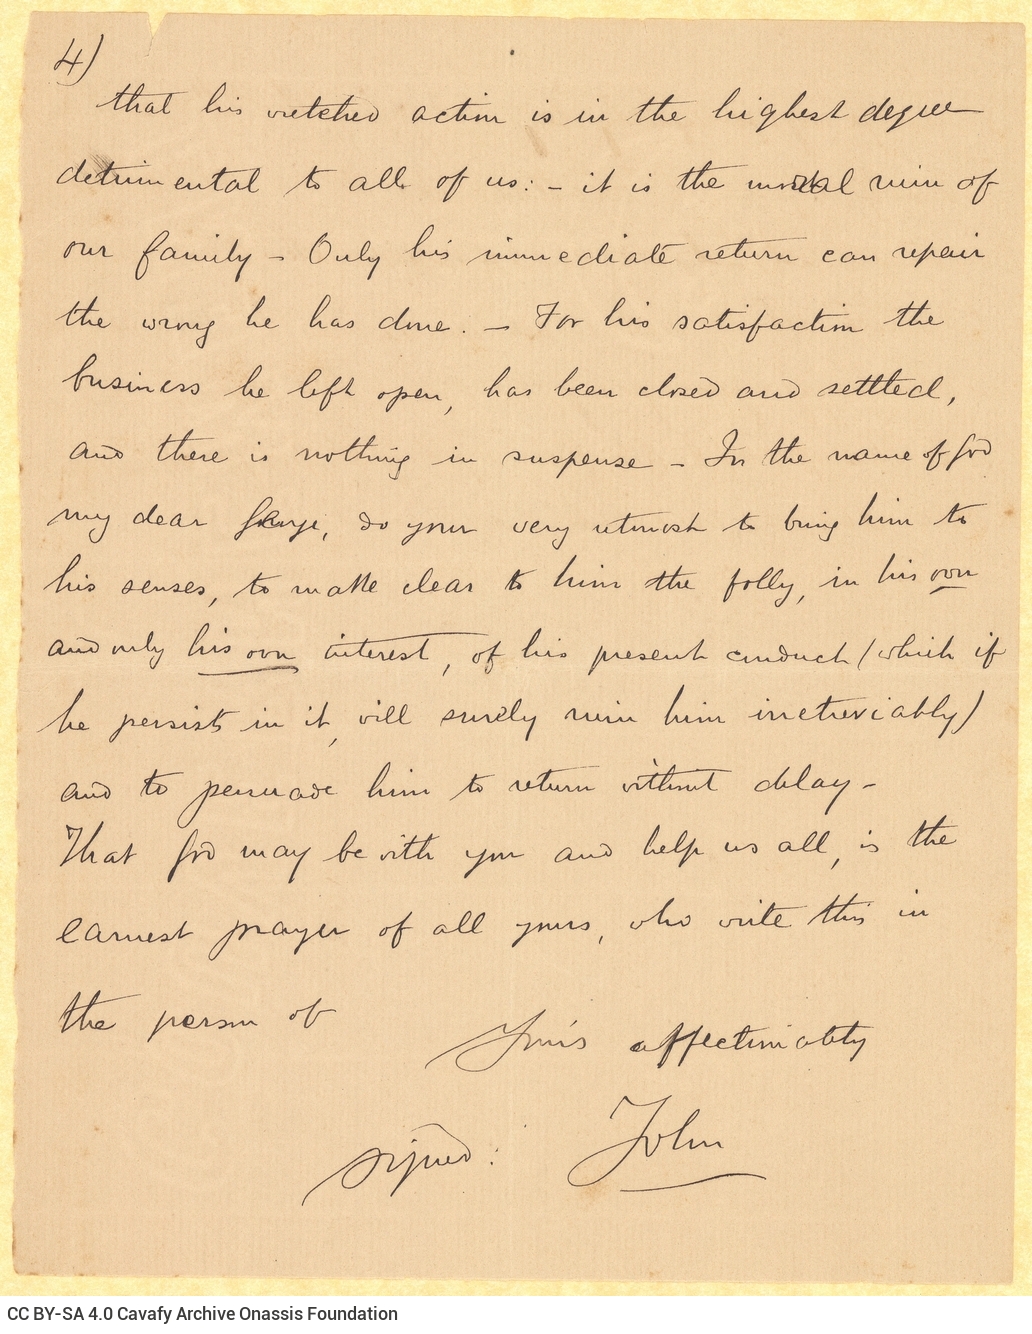 4)
that his wretched action is in the highest degree
detrimental to all of us: - it is the moral ruin of
our family - Only his immediate return can repair
the wrong he has done. - For his satisfaction the
business he left open, has been closed and settled,
and there is nothing in suspense - In the name of God
my dear George, do your very utmost to bring him to
his senses, to make clear to him the folly, in his own
and only his own interest, of his present conduct (which if
he persists in it, will surely ruin him irretrievably)
and to persuade him to return without delay -
That God may be with you and help us all, is the
earnest prayer of all yours, who write this in
the person of
Yours affectionately
signed: John
CC BY-SA 4.0 Cavafy Archive Onassis Foundation